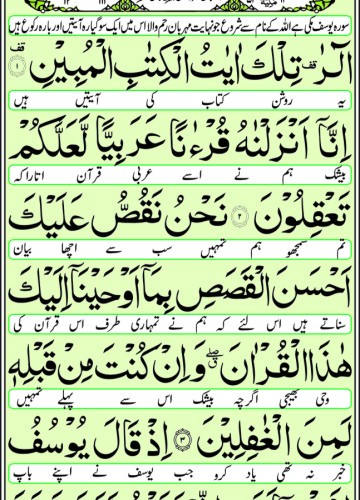 سورہ یوسف مکی ہے اللہ کے نام سے شروع جو نہایت مہربان رحم والا اس میں ایک سو گیارہ آیتیں اور بارہ رکوع ہیں
الٓرٰ تِلْكَ اٰیٰتُ الْكِتٰبِ الْمُبِیْنِ ۱
یہ روشن کتاب کی آیتیں ہیں
اِنَّاۤ اَنْزَلْنٰهُ قُرْءٰنًا عَرَبِیًّا لَّعَلَّكُمْ
بیشک ہم نے اسے عربی قرآن اتارا کہ
تَعْقِلُوْنَ ۲ نَحْنُ نَقُصُّ عَلَیْكَ
تم سمجھو ہم تمہیں سب سے اچھا بیان
اَحْسَنَ الْقَصَصِ بِمَاۤ اَوْحَیْنَاۤ اِلَیْكَ
سناتے ہیں اس لئے کہ ہم نے تمہاری طرف اس قرآن کی
هٰذَا الْقُرْاٰنَ وَ اِنْ كُنْتَ مِنْ قَبْلِهٖ
وحی بھیجی اگرچہ بیشک اس سے پہلے تمہیں
لَمِنَ الْغٰفِلِیْنَ ۳ اِذْ قَالَ یُوْسُفُ
خبر نہ تھی یاد کرو جب یوسف نے اپنے باپ